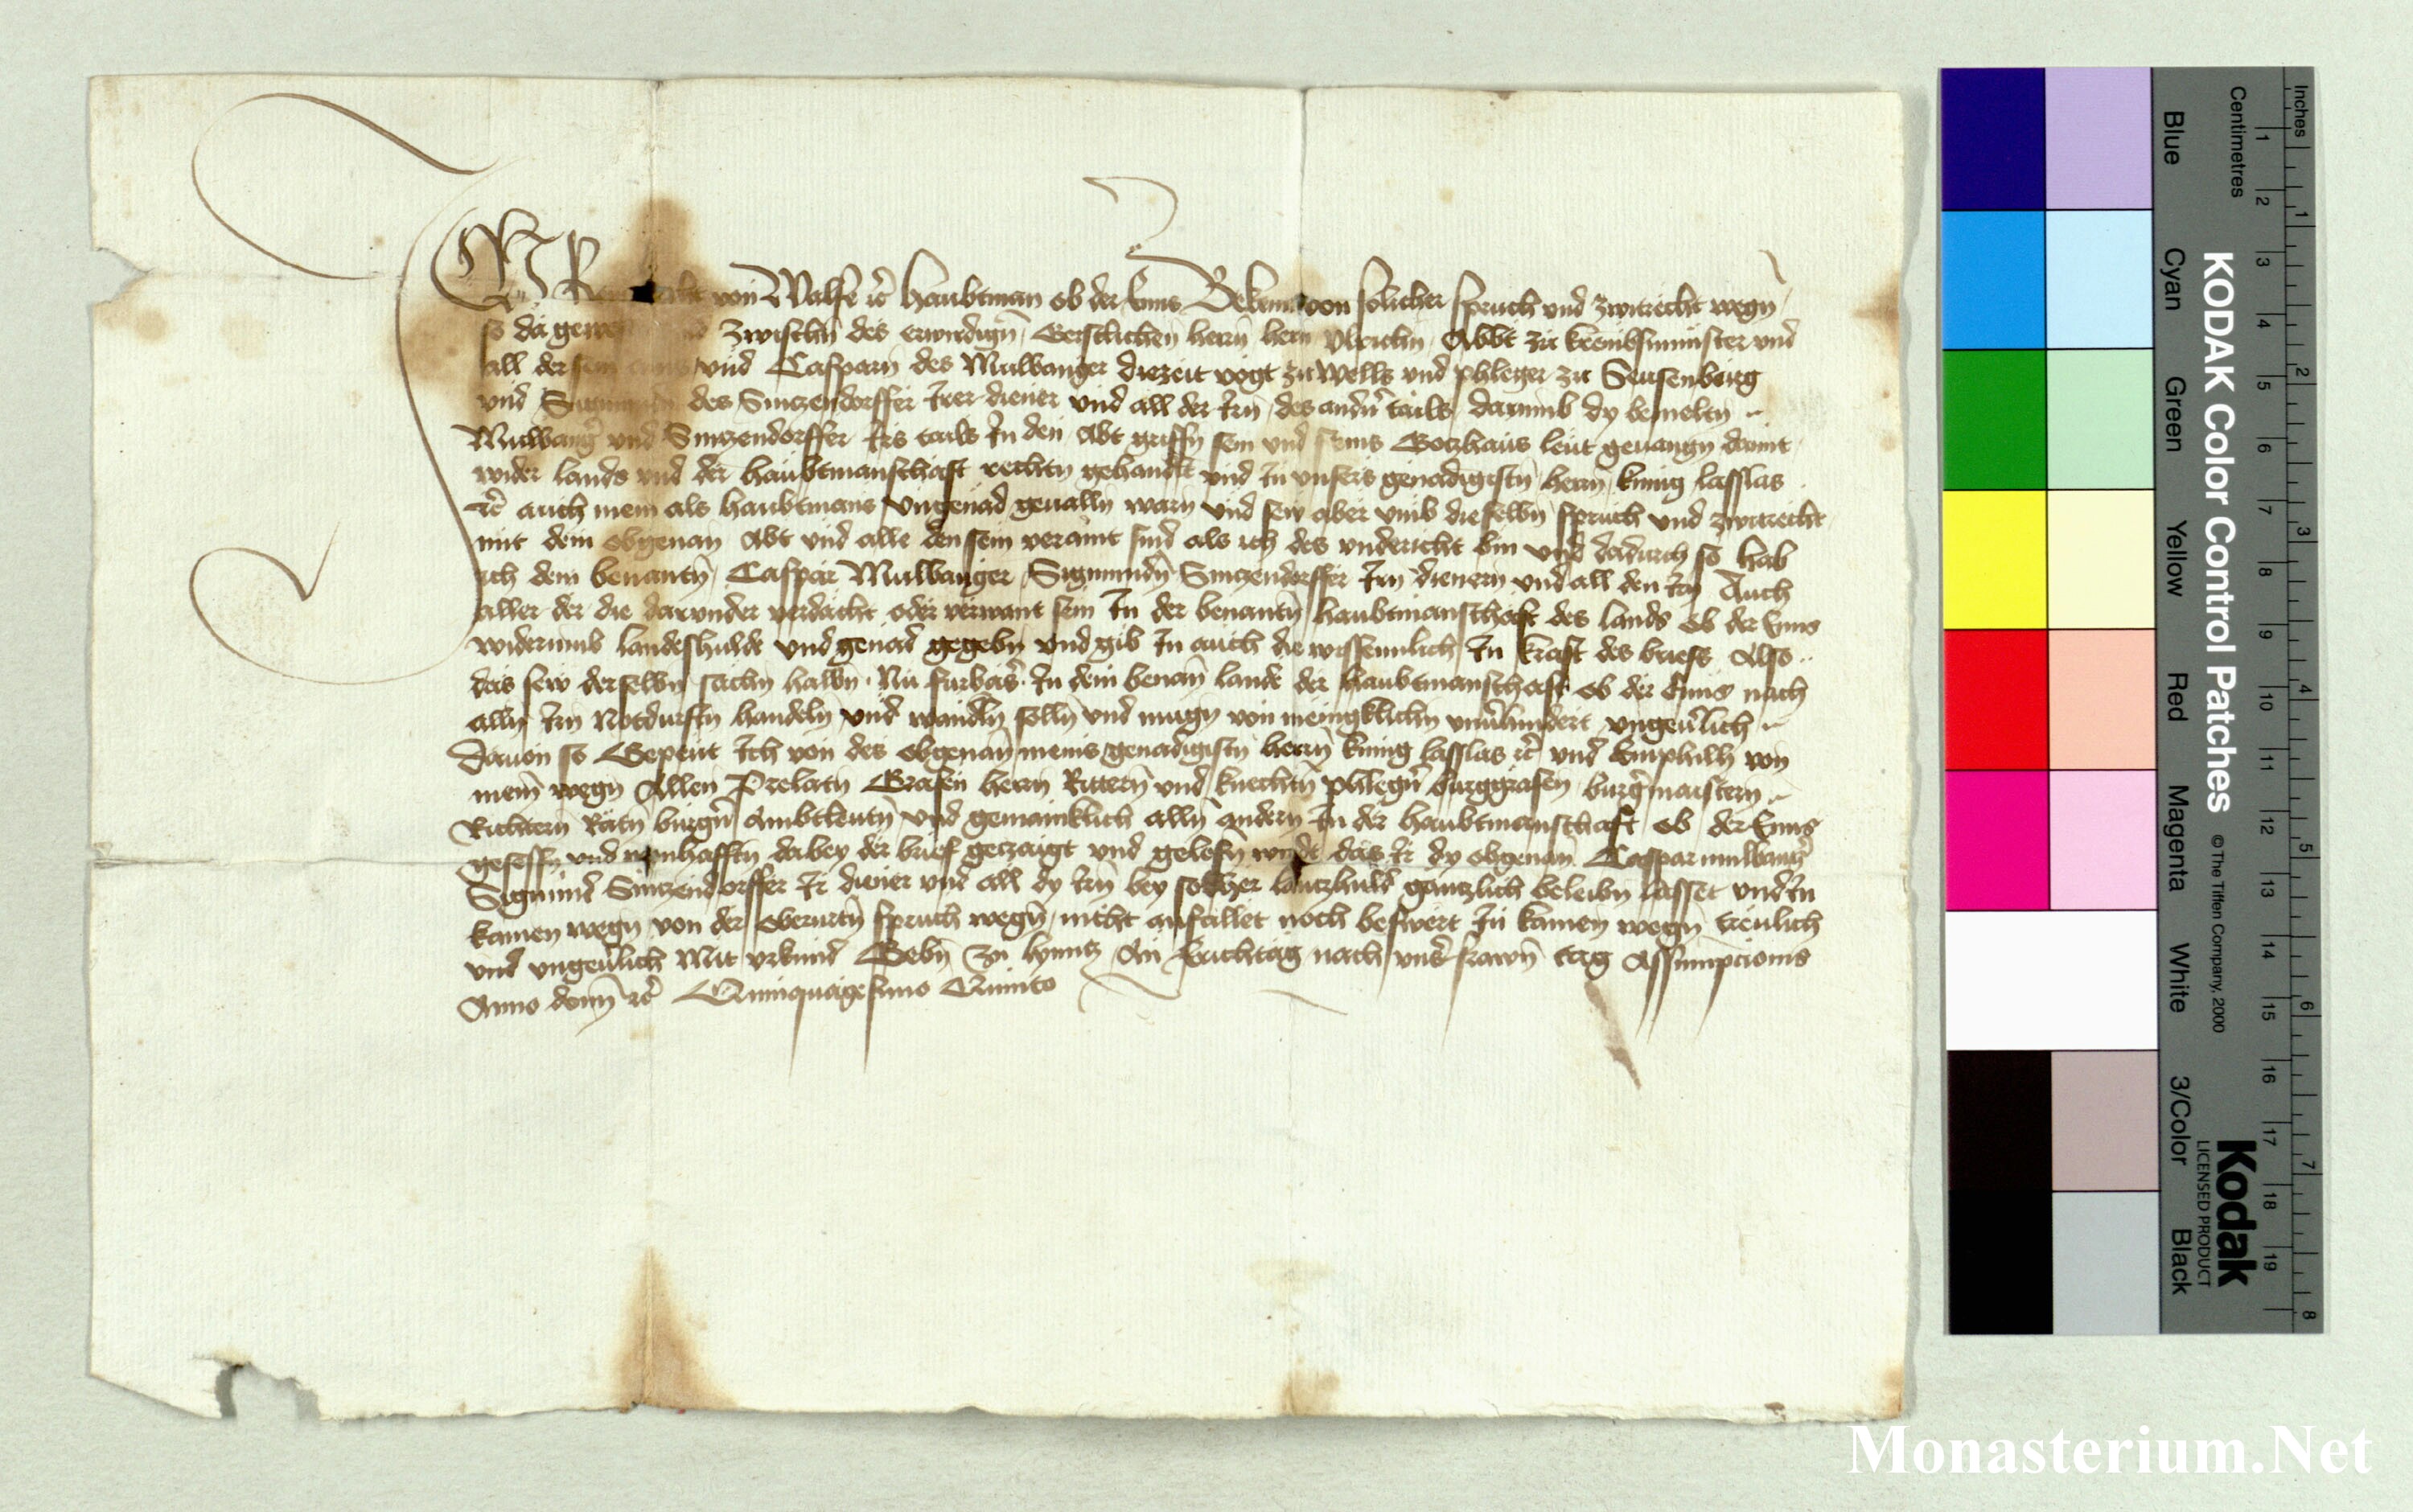 von Walsee etc haubtman ob der Enns Bekenn von solicher spruch und zwitrecht wegn
so da zwischn des erwirdign Geistlichen herrn hern Ulrichn Abbt zu Krembsmunster und
all der und Casparn des Mulwanger diezeit vogt zu Wells und phleger zu Seusenburg
und des Sintzendorffer irer diener und all der irn des andern tails darumb dy bemeltn
Mulwanger und Sintzendorffer irs tails in den Abt griffn sein und seins Gotzhaus leut geuangn damit
wider lands und der haubtmanschaft rechtn gehandlt und in unsers genadigistn herrn kunig lasslas
etc auch mein als haubtmans ungenad geualln warn und sew aber umb dieselbn spruch und zwitrecht
mit dem obgenan Abt und alle den sein veraint sind als ich des undericht bin und dadurch so hab
ich dem benantn Caspar Mulwanger Sigmundn Sintzendorffer irn dienern und all den irn Auch
aller der die darunder verdacht oder verwant sein in der benantn haubtmanschaft des lands ob der Enns
widerumb landeshulde und genad gegebn und gib in auch die wissennlich in kraft des briefs Also
das sew derselbn sachn halbn Nu furbaser in dem benan lande der haubtmanschaft ob der Enns nach
alln irn Notdurftn handeln und wandln solln und mugn von meingklichn ungeuerlich
dauon so Gepeut ich von des obgenan meins genadigistn herrn kunig lasslas etc und Emphilh von
meinn wegn Allen Prelatn Grafen herrn Rittern und knechtn phlegern burggrafen burgermaistern
Richtern Ratn burgern Ambtleutn und gemainklich alln andern in der haubtmanschaft ob der Enns
gesessn und wonhafftn dabey der brief getzaigt und gelesn wirdt das ir dy obgenan Caspar mulwanger
Sigmund Sintzendorffer ir diener und all dy irn bey solcher lantzhuld gantzlich beleibn lasset und in
kainen wegn von der berurtn spruch wegn nicht anfallet noch beswert in kainen wegn treulich
und ungeuerlich Mit urkund Gebn zu lynntz An Erichtag nach unser frawn tag Assumpcionis
Anno domini etc Quinquagesimo Quinto
Blue
Cyan
Green
Yellow
Red
Magenta
White
3/Color
Black
KODAK Color Control Patches
© The Tiffen Company, 2000
Kodak
LICENSED PRODUCT
Centimetres
1 2 3 4 5 6 7 8 9 10 11 12 13 14 15 16 17 18 19
Inches
1 2 3 4 5 6 7 8
Monasterium.Net